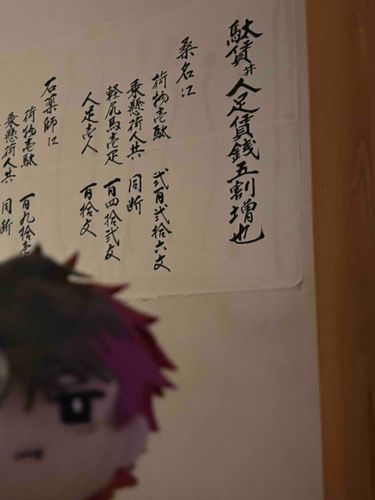 駄賃并人足賃錢五割増也
桑名江
荷物壱駄 弐百弐拾六文
乗懸荷人共 同断
軽尻馬壱疋 百四拾弐文
人足壱人 百拾文
石薬師江
荷物壱駄 百九拾
乗懸荷人共 同断